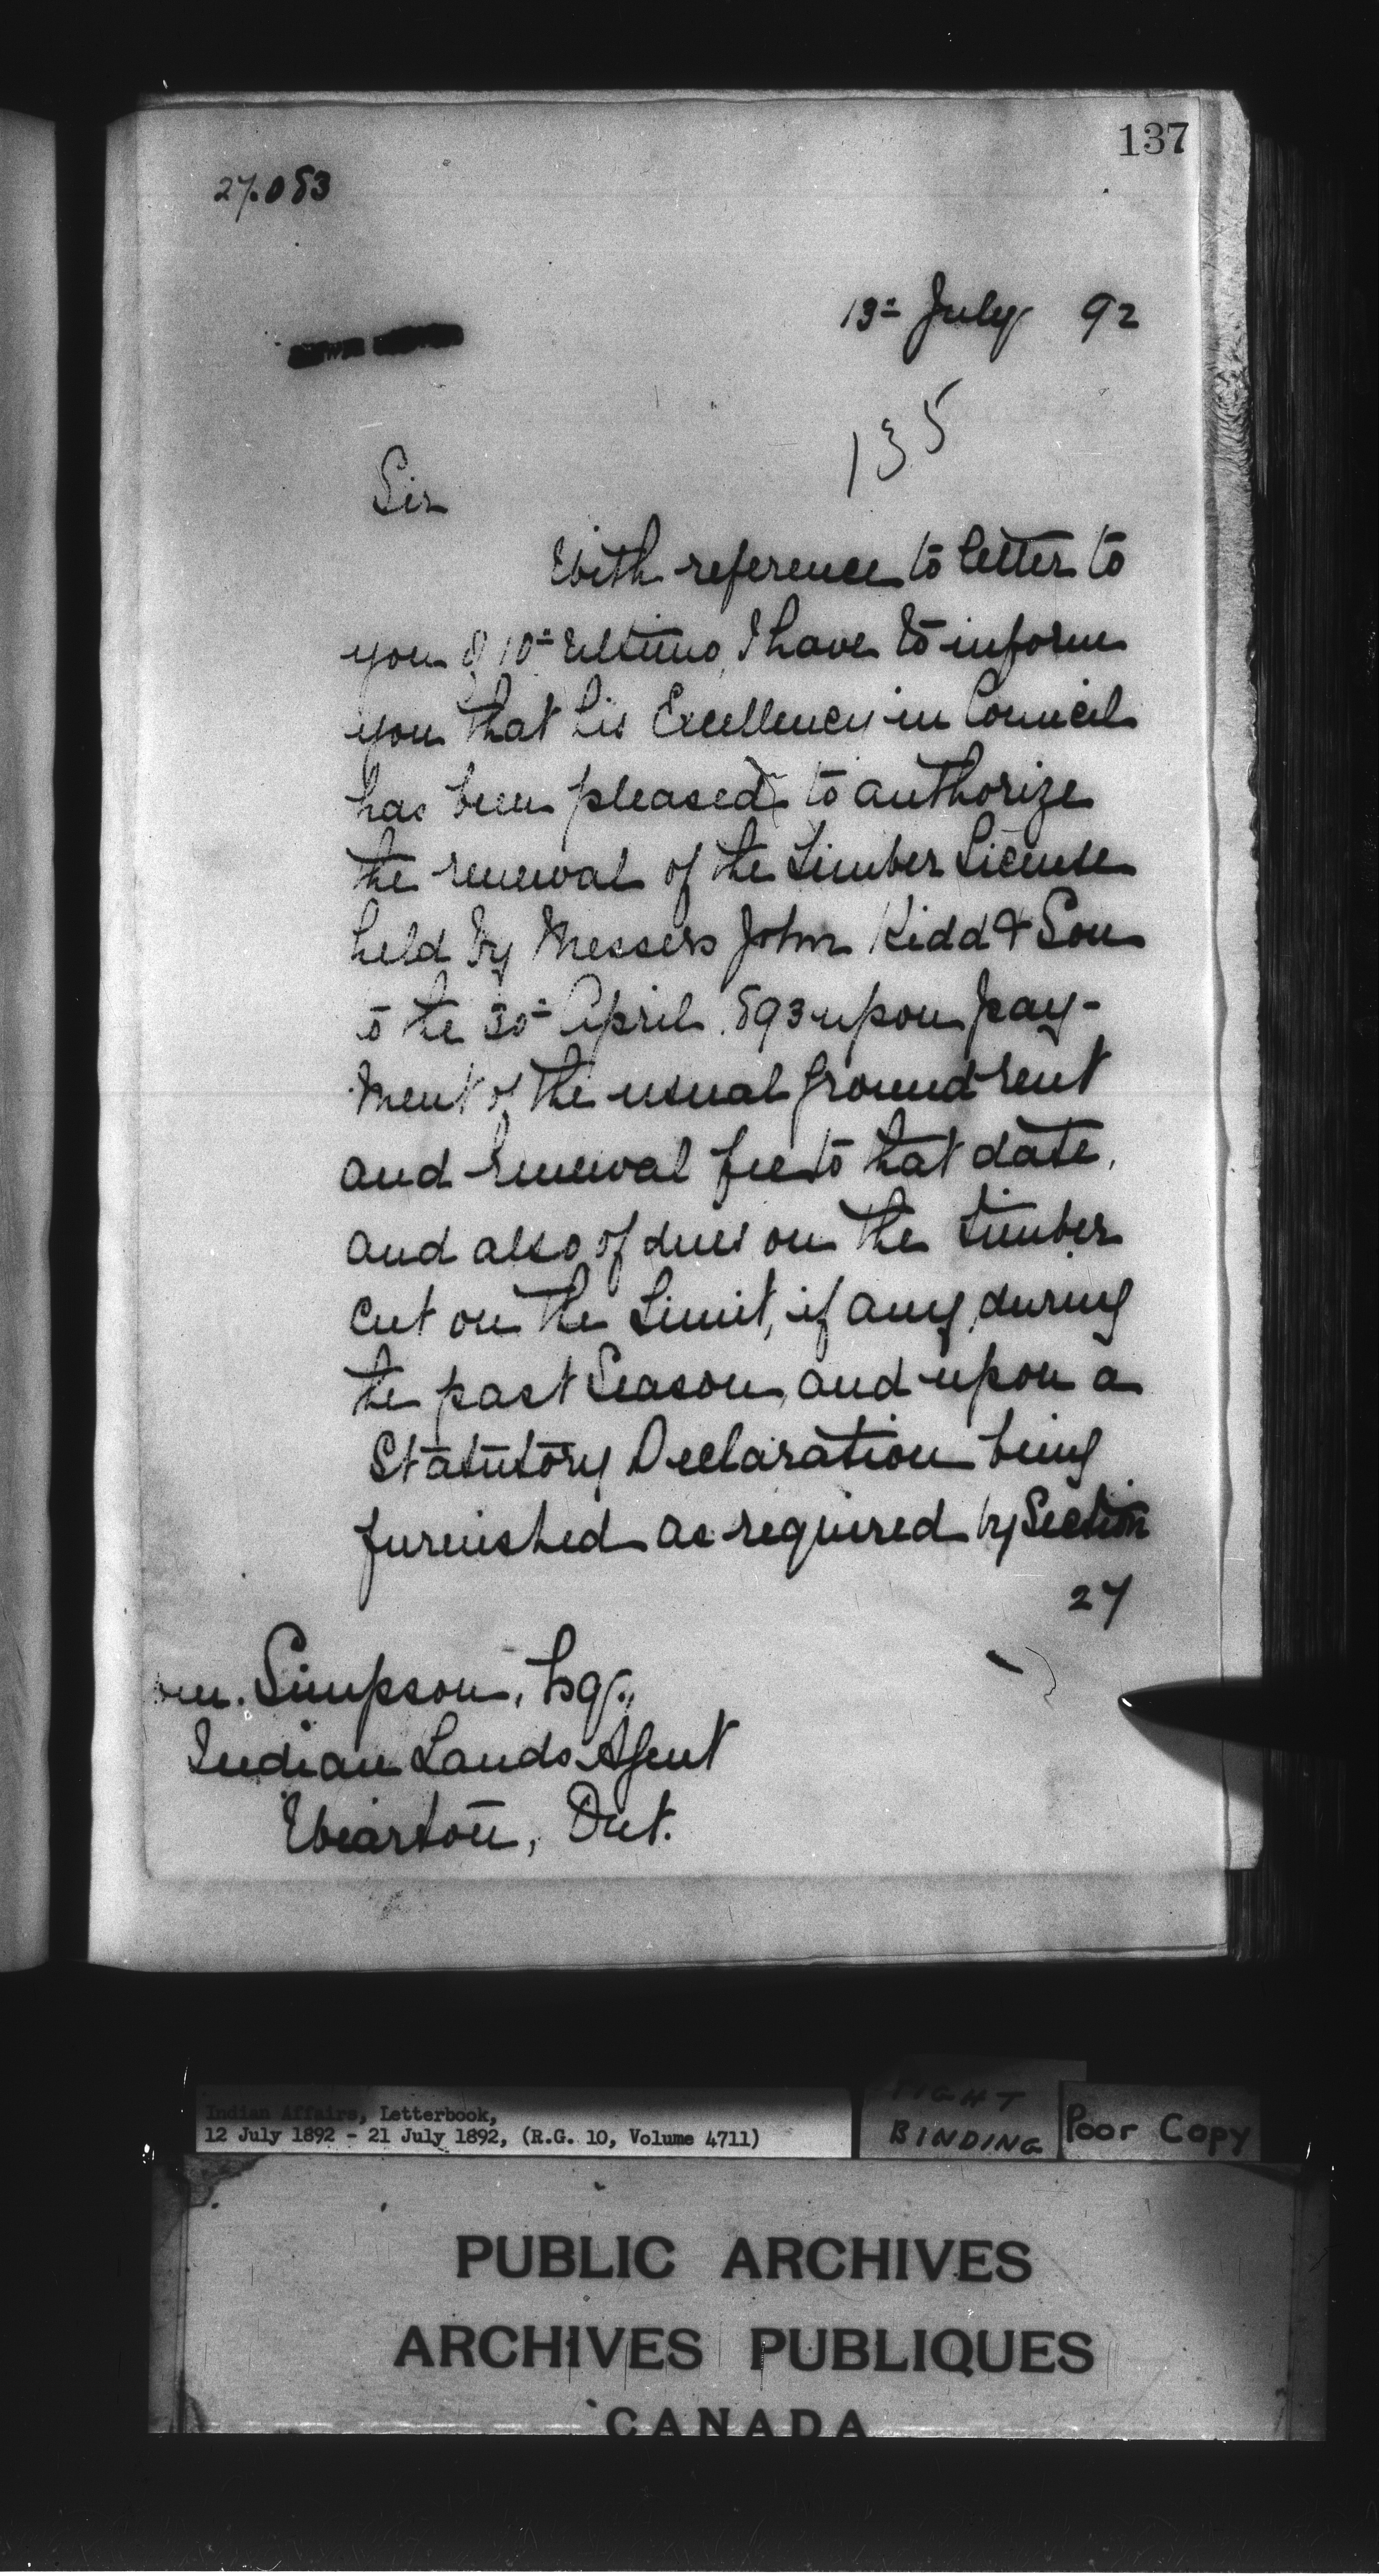 137
27.083
13th July 92
135
Sir
With reference to letter to
you of 10th Ultimo, I have to inform
you that His Excellency in Council
has been pleased to authorize
the renewal of the Timber License
held by Messers John Kidd & Son
to the 30th April 893 upon pay-
ment of the usual ground rent
and renewal fee to that date,
and also of dues on the timber
cut on the Limit, if any, during
the past Season, and upon a
Statutory Declaration being
furnished as required by Section
27
Wm. Simpson, Esq.,
Indian Lands Agent
Wiarton, Ont.
Indian Affairs, Letterbook,
12 July 1892 - 21 July 1892, (R.G. 10, Volume 4711)
TIGHT
BINDING
Poor Copy
PUBLIC ARCHIVES
ARCHIVES PUBLIQUES
CANADA